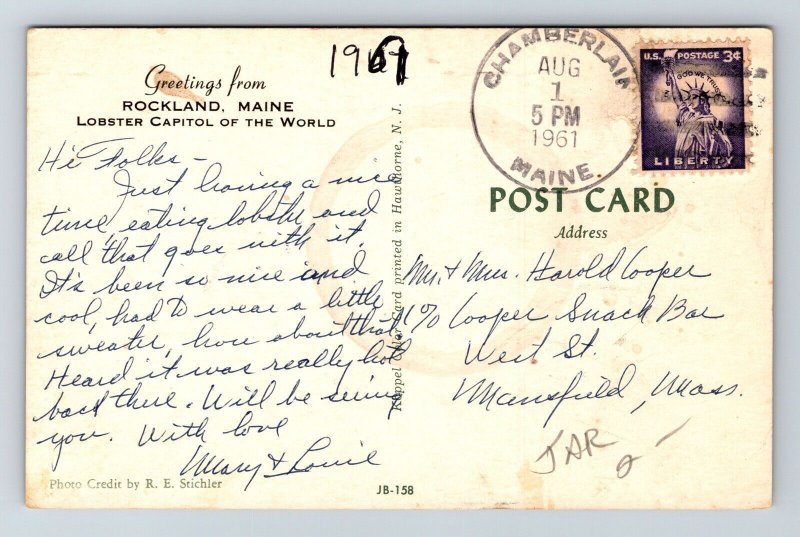 Greetings from
ROCKLAND, MAINE
LOBSTER CAPITOL OF THE WORLD
Hi Folks -
Just having a nice
time eating lobster and
all that goes with it.
It's been so nice and
cool, had to wear a little
sweater, how about that,
Heard it was really hot
back there. Will be seeing
you. With love
Mary & Louie
Photo Credit by R. E. Stichler
Koppel Color Card printed in Hawthorne, N. J.
JB-158
CHAMBERLAIN
AUG
1
5 PM
1961
MAINE
U.S. POSTAGE 3¢
IN GOD WE TRUST
LIBERTY
POST CARD
Address
Mr. & Mrs. Harold Cooper
% Cooper Snack Bar
West St.
Mansfield, Mass.